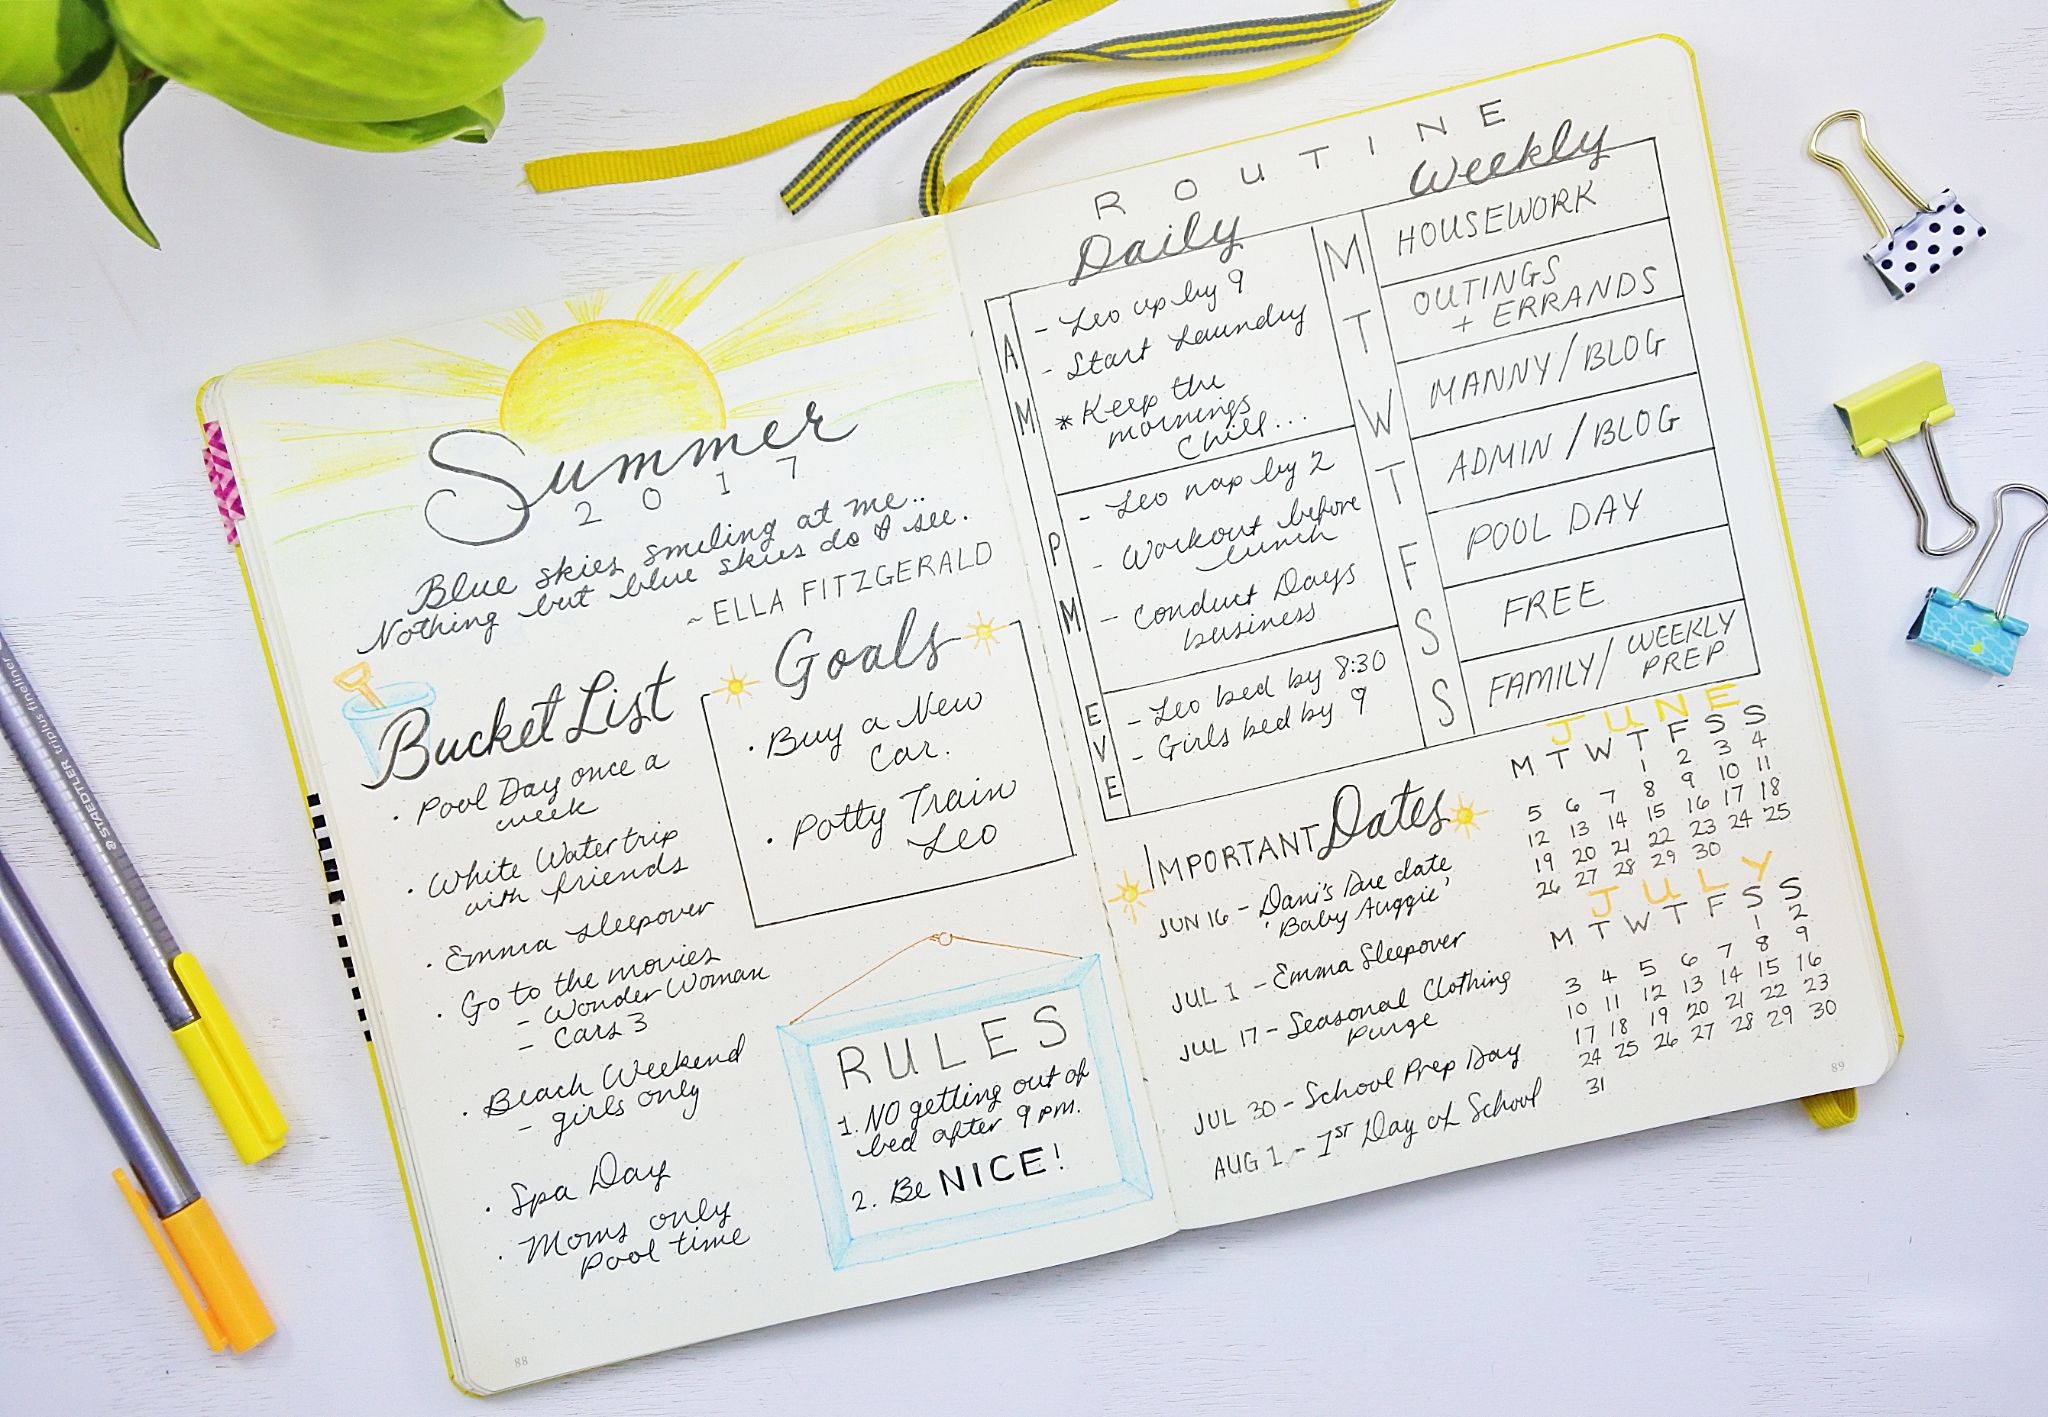 Summer
2 0 1 7
Blue skies smiling at me..
Nothing but blue skies do I see.
~ ELLA FITZGERALD
Bucket List
· Pool Day once a
week
· White Water trip
with friends
· Emma Sleepover
· Go to the movies
- Wonder Woman
- Cars 3
· Beach Weekend
- girls only
· Spa Day
· Moms only
pool time
Goals
· Buy a New
Car.
· Potty Train
Leo
RULES
1. NO getting out of
bed after 9 pm.
2. Be NICE!
88
ROUTINE
Daily
AM
- Leo up by 9
- Start Laundry
* Keep the
mornings
Chill...
PM
- Leo nap by 2
- Workout before
lunch
- Conduct Days
business
EVE
- Leo bed by 8:30
- Girls bed by 9
Weekly
M HOUSEWORK
T OUTINGS
+ ERRANDS
W MANNY/BLOG
T ADMIN/BLOG
F POOL DAY
S FREE
S FAMILY/WEEKLY
PREP
IMPORTANT Dates
JUN 16 - Dani's Due date
'Baby Auggie'
JUL 1 - Emma Sleepover
JUL 17 - Seasonal Clothing
Purge
JUL 30 - School Prep Day
AUG 1 - 1ST Day of School
JUNE
M T W T F S S
1 2 3 4
5 6 7 8 9 10 11
12 13 14 15 16 17 18
19 20 21 22 23 24 25
26 27 28 29 30
JULY
M T W T F S S
1 2
3 4 5 6 7 8 9
10 11 12 13 14 15 16
17 18 19 20 21 22 23
24 25 26 27 28 29 30
31
89
STAEDTLER triplus fineliner